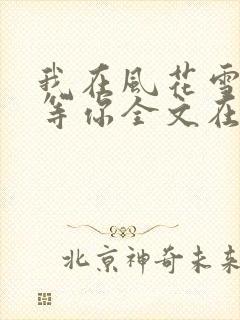 我在風花雪
等你全文在
北京神奇未来